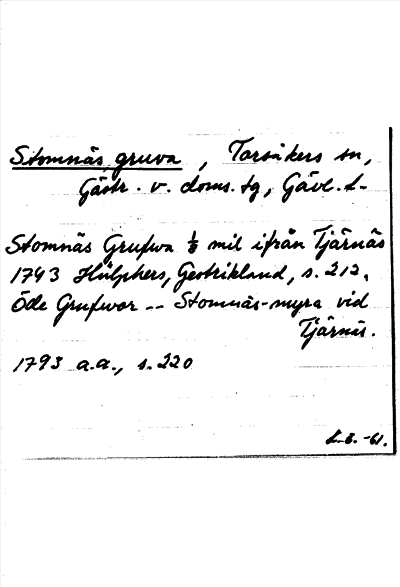 Stomnäs gruva, Torsåkers sn,
Gästr. v. doms. tg, Gävl. l.
Stomnäs Grufwa ⅛ mil ifrån Tjärnäs
1793 Hülphers, Gestrikland, s. 212.
Öde Grufwor -- Stomnäs-myra vid
Tjärnäs.
1793 a.a., s. 220
L.E. -61.